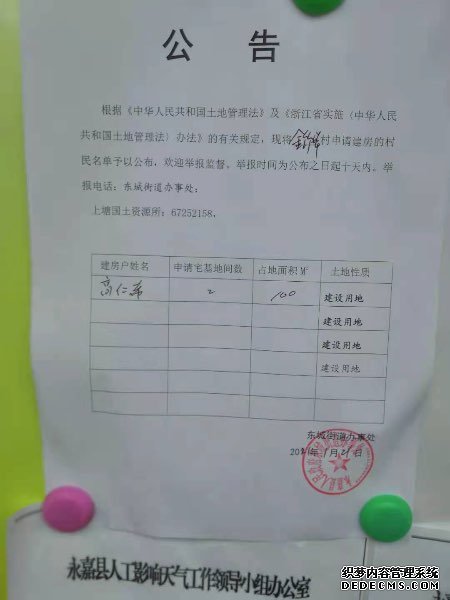 公 告
根据《中华人民共和国土地管理法》及《浙江省实施〈中华人民
共和国土地管理法〉办法》的有关规定，现将 村申请建房的村
民名单予以公布，欢迎举报监督。举报时间为公布之日起十天内。举
报电话：东城街道办事处：
上塘国土资源所：67252158，
建房户姓名 申请宅基地间数 占地面积 M² 土地性质
高仁 2 100 建设用地
建设用地
建设用地
建设用地
东城街道办事处
月 日
永嘉县人工影响天气工作领导小组办公室
织梦内容管理系统
DEDECMS.COM